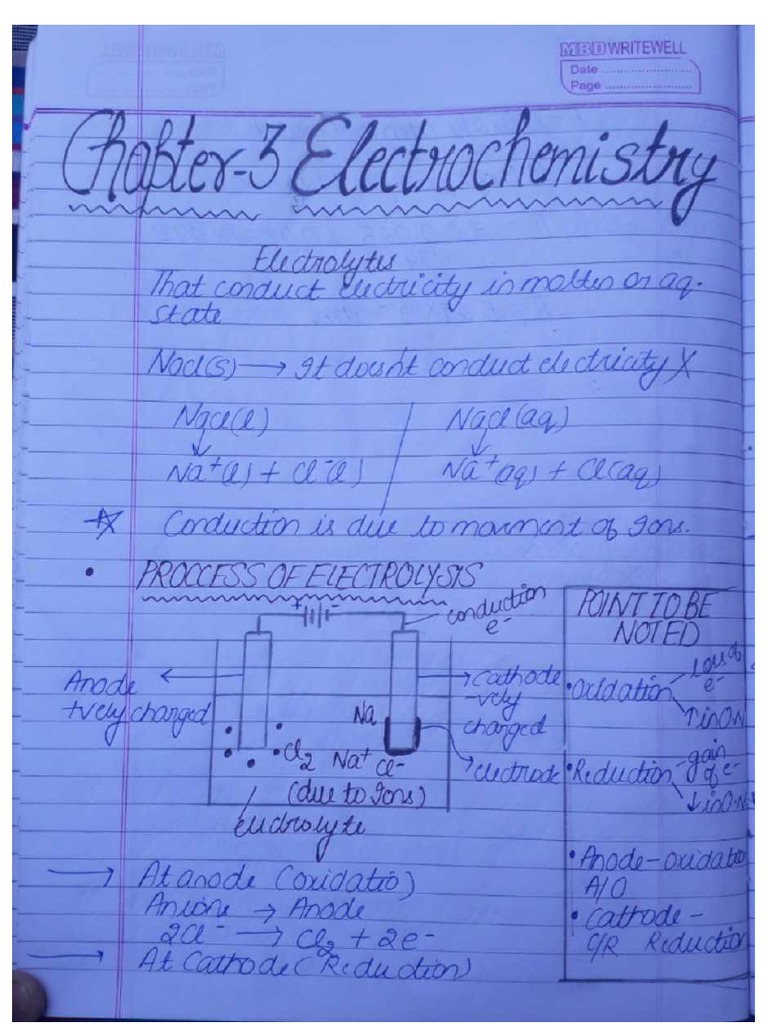 MBD WRITEWELL
Date
Page
Chapter-3 Electrochemistry
Electrolytes
That conduct electricity in molten or aq.
state
Nacl(s) → It doesn't conduct electricity X
Nacl(l)
Nacl(aq)
↓
↓
Na+(l) + Cl-(l)
Na+(aq) + Cl(aq)
Conduction is due to movment of Ions.
• PROCCESS OF ELECTROLYSIS
+ -
conduction
e-
Anode
+vely charged
→ Cathode
-vely
charged
Na
Cl2 Na+ Cl-
(due to Ions)
→ electrode
electrolyte
POINT TO BE
NOTED
• Oxidation
Loss of
e-
↑ in ON
• Reduction
gain
of e-
↓ in ON
• Anode - oxidatio
A/O
• Cathode -
C/R Reduction
→ At anode (oxidatio)
Anions → Anode
2Cl- → Cl2 + 2e-
→ At Cathode (Reduction)